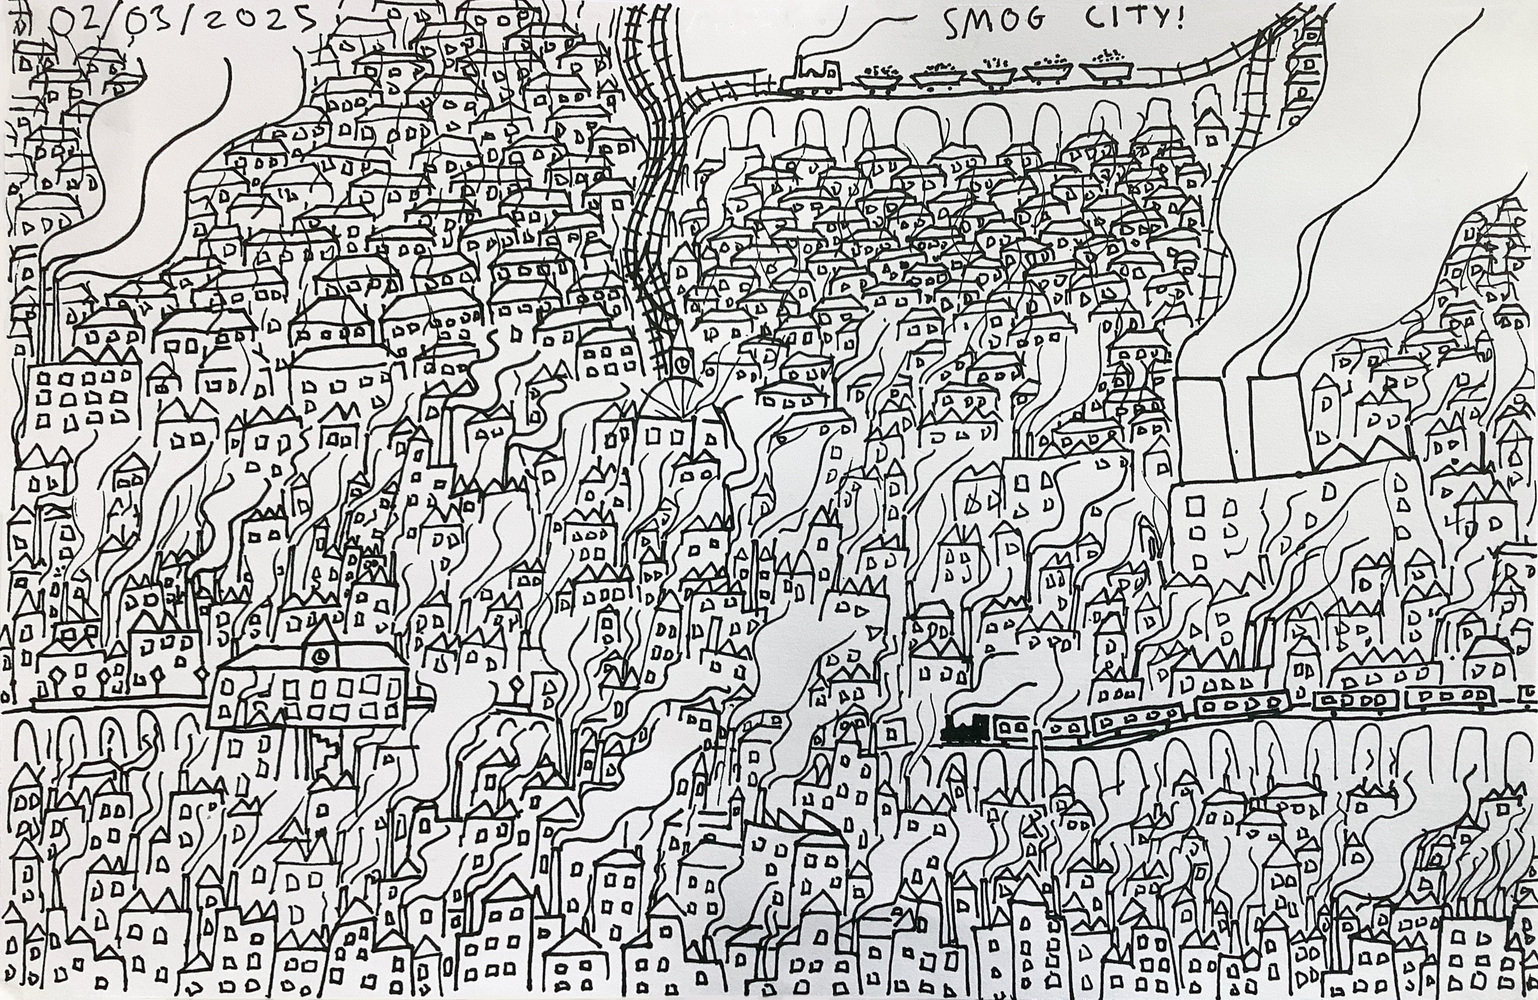 02/03/2025
SMOG CITY!